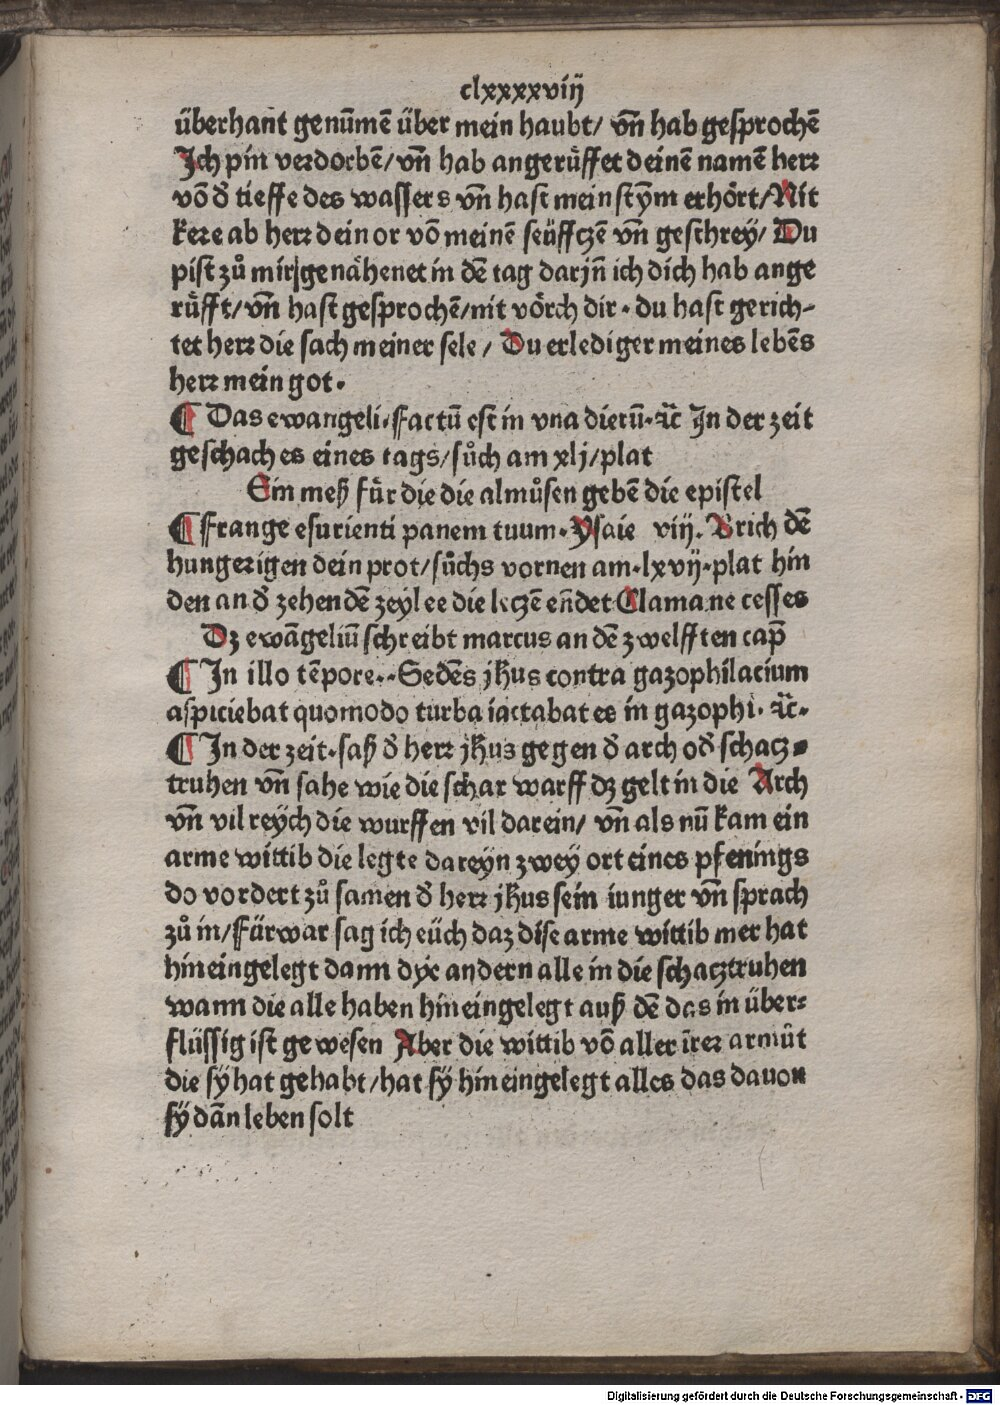 clxxxxviij
überhant genūmē über mein haubt/ vn̄ hab gesprochē
Jch pin verdorbē/vn̄ hab angerüffet deinē namē herr
vō đ tieffe des wassers vn̄ hast mein stym erhört/Nit
kere ab herr dein or vō meinē seüffczē vn̄ geschrey/ Du
pist zů mir genähenet in dē tag darjn̄ ich dich hab ange
rüfft/vn̄ hast gesprochē/nit vörch dir. du hast gerich-
tet herr die sach meiner sele/ Du erlediger meines lebēs
herr mein got.
¶ Das ewangeli.Factū est in vna dierū.⁊c̄ Jn der zeit
geschach es eines tags/sůch am xlj/plat
Ein meß für die die almůsen gebē die epistel
¶ Frange esurienti panem tuum.Ysaie viij. Brich dē
hungerigen dein prot/sůchs vornen am.lxvij.plat hin
den an đ zehendē zeyl ee die leczē en̄det Clama ne cesses
Dz ewāgeliū schreibt marcus an dē zwelfften cap̄
¶ Jn illo tēpore..Sedēs jħus contra gazophilacium
aspiciebat quomodo turba iactabat es in gazophi. ⁊c̄.
¶ Jn der zeit.saß đ herr jħus gegen đ arch ođ schacz-
truhen vn̄ sahe wie die schar warff dz gelt in die Arch
vn̄ vil reych die wurffen vil darein/ vn̄ als nū kam ein
arme wittib die legte dareyn zwey ort eines pfenings
do vordert zů samen đ herr jħus sein iunger vn̄ sprach
zů in/Fürwar sag ich eüch daz dise arme wittib mer hat
hineingelegt dann dye andern alle in die schacztruhen
wann die alle haben hineingelegt auß dē das in über-
flüssig ist gewesen Aber die wittib vō aller irer armůt
die sy hat gehabt/hat sy hineingelegt alles das dauon
sy dān leben solt
Digitalisierung gefördert durch die Deutsche Forschungsgemeinschaft - DFG